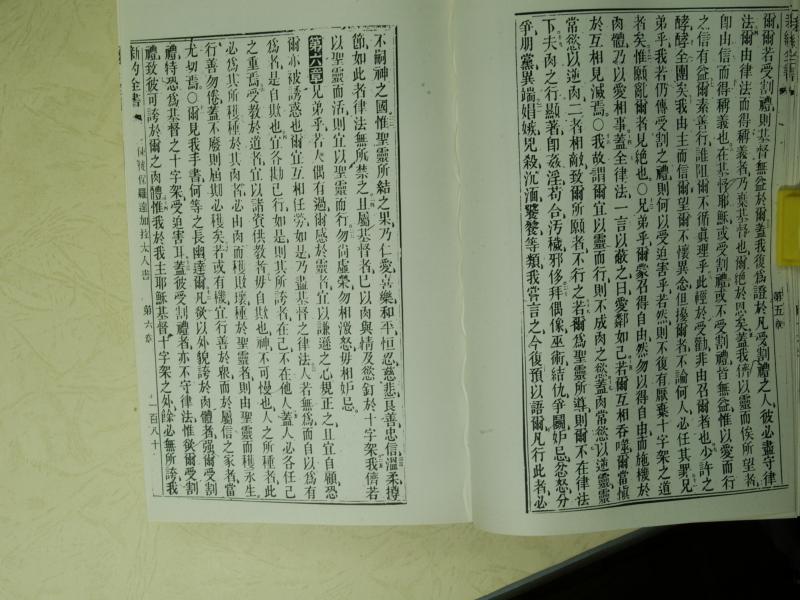 爾爾若受割禮則基督無益於爾蓋我復爲證於凡受割禮之人彼必盡守律
法爾由律法而得稱義者乃棄基督也爾絕於恩矣蓋我儕以靈而俟所望者
卽由信而得稱義也在基督耶穌或受割禮或不受割禮皆無益惟以愛而行
之信有益爾素善行誰阻爾不循眞理乎此輕於受勸非由召爾者也少許之
酵酵全團矣我由主而信爾望爾不懷異念但擾爾者不論何人必任其罪兄
弟乎我若仍傳受割之禮則何以受迫害乎若然則不復有厭棄十字架之道
者矣惟願亂爾者見絕也○兄弟乎爾蒙召得自由然勿以得自由而施機於
肉體乃以愛相事蓋全律法一言以蔽之曰愛鄰如己若爾互相吞噬爾當愼
於互相見滅焉○我故謂爾宜以靈而行則不成肉之欲蓋肉常慾以逆靈靈
常慾以逆肉二者相敵致爾所願者不行之若爾爲聖靈所導則爾不在律法
下夫肉之行顯著卽姦淫苟合汚穢邪侈拜偶像巫術結仇爭鬭妒忌忿怒分
爭朋黨異端娼嫉兇殺沉湎饕餮等類我嘗言之今復預以語爾凡行此者必
第五章
不嗣神之國惟聖靈所結之果乃仁愛喜樂和平恒忍慈悲良善忠信溫柔撙
節如此者律法無所禁之且屬基督者已以肉與情及慾釘於十字架我儕若
以聖靈而活則宜以聖靈而行勿尙虛榮勿相激怒毋相妒忌
第六章兄弟乎若人偶有過爾感於靈者宜以謙遜之心規正之且宜自顧恐
爾亦被誘惑也爾宜互相任勞如是乃盡基督之律法人若無爲而自以爲有
爲者是自欺也宜各勘己行如是則其所誇者在己不在他人蓋人必各任己
之重焉受敎於道者宜以諸資供敎者毋自欺也神不可慢也人之所種者此
必爲其所穫種於其肉者必由肉而穫敗壞種於聖靈者則由聖靈而穫永生
行善勿倦蓋不廢則屆期必穫矣若或有機宜行善於衆而於屬信之家者當
尤切焉○爾見我手書何等之長幽達爾凡欲以外貌誇於肉體者强爾受割
禮特恐爲基督之十字架受迫害耳蓋彼受割禮者亦不守律法惟欲爾受割
禮致彼可誇於爾之肉體惟我於我主耶穌基督十字架之外餘必無所誇我
新約全書 使徒保羅達加拉太人書 第六章 一百八十